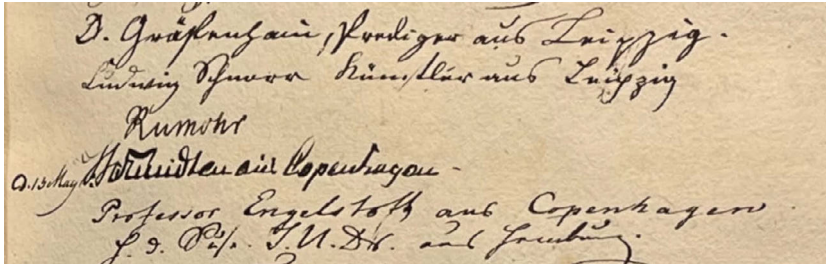 D. Gräfenhain, Prediger aus Leipzig.
Ludwig Schnorr Künstler aus Leipzig
Rumohr
d. 13 May. aus Copenhagen
Professor Engelstoft aus Copenhagen
J. U. Dr. aus Hamburg.